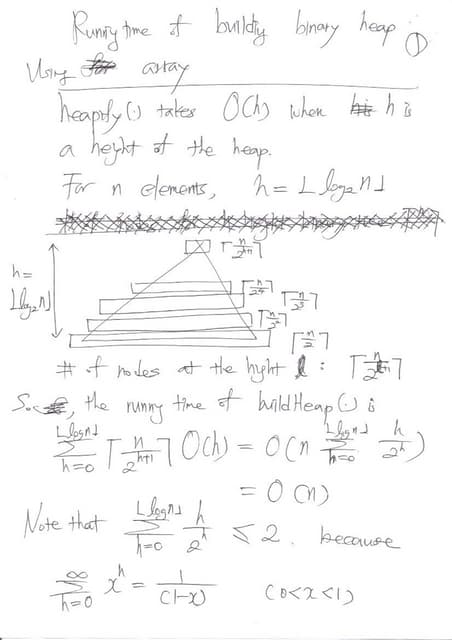 Runny time of buildiy binary heap ①
Using array
heapify(·) takes O(h) when h is
a height of the heap.
For n elements, h = ⌊log₂n⌋
h =
⌊log₂n⌋
⌈n/2ʰ⁺¹⌉
⌈n/2⁴⌉
⌈n/2³⌉
⌈n/2²⌉
⌈n/2⌉
# of nodes at the hyht h : ⌈n/2ʰ⁺¹⌉
So, the runny time of buildHeap(·) is
⌊logn⌋ ∑ h=0 ⌈n/2ʰ⁺¹⌉ O(h) = O(n ⌊logn⌋ ∑ h=0 h/2ʰ)
= O(n)
Note that ⌊logn⌋ ∑ h=0 h/2ʰ ≤ 2. because
∞ ∑ h=0 xʰ = 1/(1-x) (0<x<1)